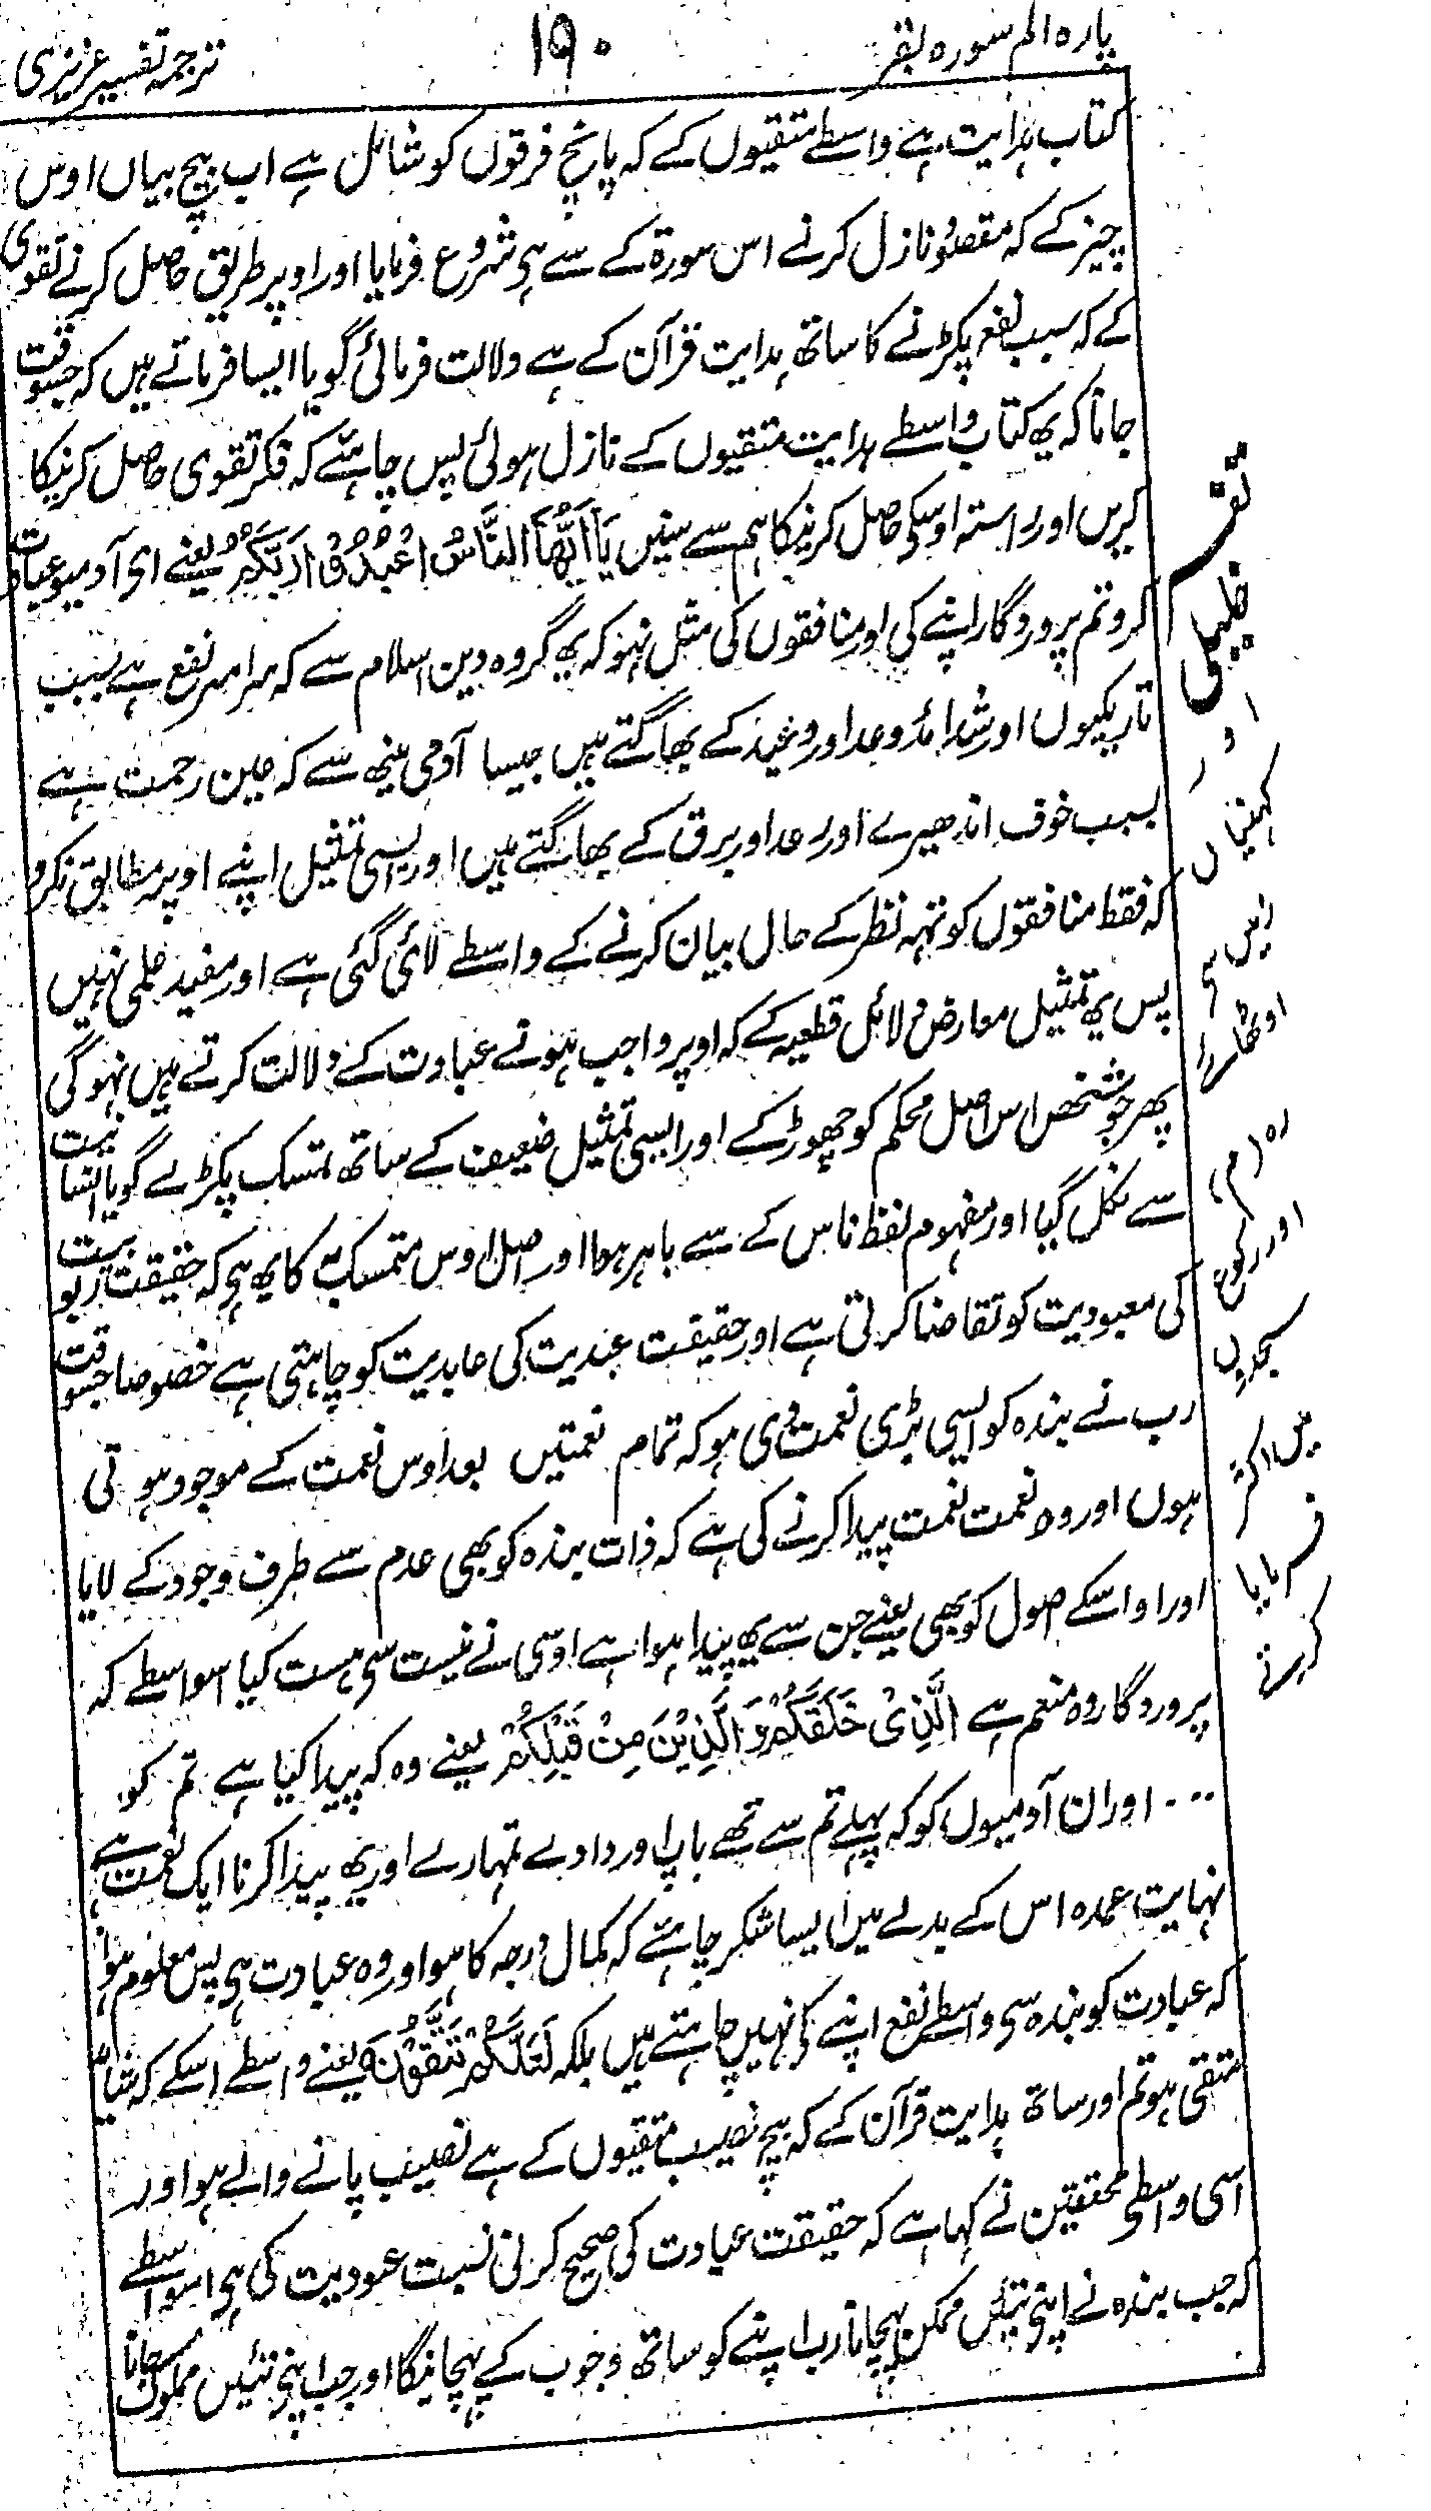 پارہ الم سورہ بقر
۱۹۰
ترجمہ تفسیر عزیزی
کتاب ہدایت ہے واسطے متقیوں کے کہ پانچ فرقوں کو شامل ہے اب بیچ بیاں اوس
چیز کے کہ مقصود نازل کرنے اس سورۃ کے سے ہی شروع فرمایا اور اوپر طریق حاصل کرنے تقوی
کے کہ سبب نفع پکڑنے کا ساتھ ہدایت قرآن کے ہے دلالت فرمائی گویا ایسا فرماتے ہیں کہ جسوقت
جانا کہ یہ کتاب واسطے ہدایت متقیوں کے نازل ہوئی پس چاہئے کہ فکر تقوی حاصل کرنیکا
کریں اور راستہ اوسکی حاصل کرنیکا ہم سے سنیں یَا اَیُّہَا النَّاسُ اعْبُدُوْا رَبَّکُمْ یعنے ای آدمیو عبادت
کرو تم پروردگار اپنے کی اور منافقوں کی مثل نہو کہ یہ گروہ دین اسلام سے کہ سراسر نفع ہے بسبب
تاریکیوں اور شدائد وعد اور وعید کے بھاگتے ہیں جیسا آدمی مینھ سے کہ عین رحمت ہے
بسبب خوف اندھیرے اور رعد اور برق کے بھاگتے ہیں اور ایسی تمثیل اپنے اوپر مطابق نکرو
کہ فقط منافقوں کو تہہ نظر کے حال بیان کرنے کے واسطے لائی گئی ہے اور مفید علمی نہیں
پس یہ تمثیل معارض دلائل قطعیہ کے کہ اوپر واجب ہونے عبادت کے دلالت کرتے ہیں نہوگی
پھر جو شخص اس اصل محکم کو چھوڑ کے اور ایسی تمثیل ضعیف کے ساتھ تمسک پکڑے گویا انسانیت
سے نکل گیا اور مفہوم لفظ ناس کے سے باہر ہوا اور اصل اوس متمسک کا یہ ہی کہ حقیقت ربوبیت
کی معبودیت کو تقاضا کرتی ہے اور حقیقت عبدیت کی عابدیت کو چاہتی ہے خصوصا جسوقت
رب نے بندہ کو ایسی بڑی نعمت دی ہو کہ تمام نعمتیں بعد اوس نعمت کے موجود ہوتی
ہوں اور وہ نعمت نعمت پیدا کرنے کی ہے کہ ذات بندہ کو بھی عدم سے طرف وجود کے لایا
اور اوسکے اصول کو بھی یعنے جن سے یہ پیدا ہوا ہے اوسی نے نیست سی ہست کیا اسواسطے کہ
پروردگار وہ منعم ہے الَّذِیْ خَلَقَکُمْ وَالَّذِیْنَ مِنْ قَبْلِکُمْ یعنے وہ کہ پیدا کیا ہے تم کو
۰۰۰ اور ان آدمیوں کو کہ پہلے تم سے تھے باپ اور دادے تمہارے اور یہ پیدا کرنا ایک نعمت ہے
نہایت عمدہ اس کے بدلے میں ایسا شکر چاہئے کہ کمال درجہ کا ہو اور وہ عبادت ہی پس معلوم ہوا
کہ عبادت کو بندہ سی واسطے نفع اپنے کی نہیں چاہتے ہیں بلکہ لَعَلَّکُمْ تَتَّقُوْنَ یعنے واسطے اسکے کہ شاید
متقی ہو تم اور ساتھ ہدایت قرآن کے کہ بیچ نصیب متقیوں کے ہے نصیب پانے والے ہو اور
اسی واسطی محققین نے کہا ہے کہ حقیقت عبادت کی صحیح کرنی نسبت عبودیت کی ہی اسواسطے
کہ جب بندہ نے اپنی تئیں ممکن پہچانا رب اپنے کو ساتھ وجوب کے پہچانیگا اور جب اپنی تئیں مملوک جانا
اور
اور رکوع
سجدیں
میں